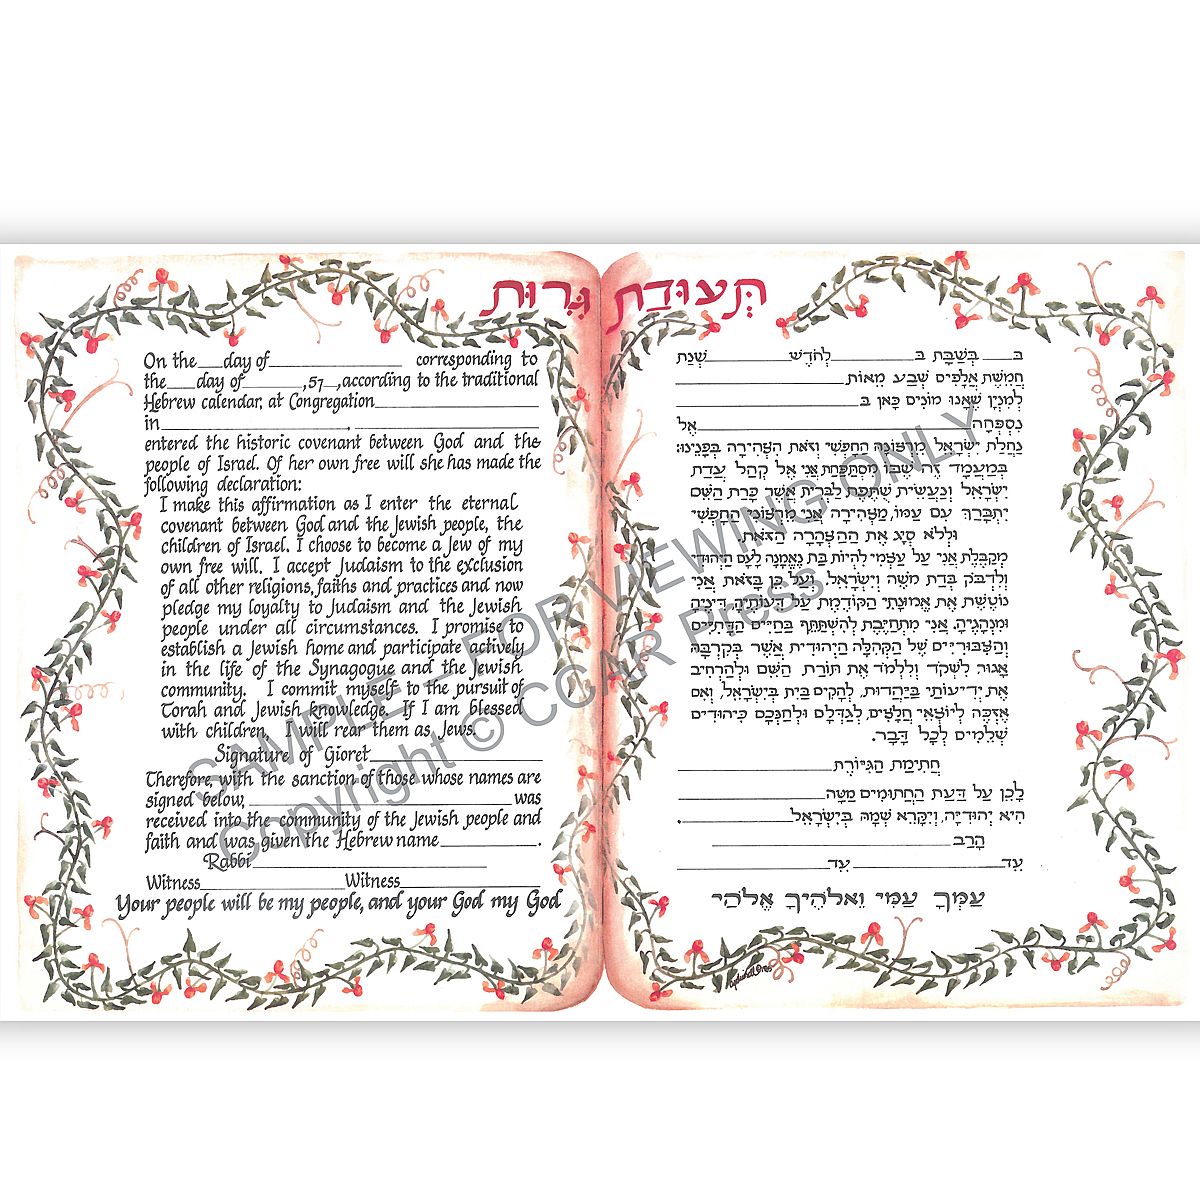 תְּעוּדַת גֵּרוּת
On the___day of_______________ corresponding to
the___day of_______,57__,according to the traditional
Hebrew calendar, at Congregation___________________
in_____________________, _____________________
entered the historic covenant between God and the
people of Israel. Of her own free will she has made the
following declaration:
I make this affirmation as I enter the eternal
covenant between God and the Jewish people, the
children of Israel. I choose to become a Jew of my
own free will. I accept Judaism to the exclusion
of all other religions, faiths and practices and now
pledge my loyalty to Judaism and the Jewish
people under all circumstances. I promise to
establish a Jewish home and participate actively
in the life of the Synagogue and the Jewish
community. I commit myself to the pursuit of
Torah and Jewish knowledge. If I am blessed
with children, I will rear them as Jews.
Signature of Gioret_____________________
Therefore, with the sanction of those whose names are
signed below, ______________________________ was
received into the community of the Jewish people and
faith and was given the Hebrew name___________.
Rabbi___________________________
Witness_______________Witness_______________
Your people will be my people, and your God my God
בּ____ בְּשַׁבָּת בּ___________לְחֹדֶשׁ___________שְׁנַת
חֲמֵשֶׁת אֲלָפִים שְׁבַע מֵאוֹת____________________
לְמִנְיָן שֶׁאָנוּ מוֹנִים כָּאן בּ____________________
נִסְפְּחָה______________________________אֶל
נַחֲלַת יִשְׂרָאֵל מֵרְצוֹנָהּ הַחָפְשִׁי וְזֹאת הִצְהִירָה בְּפָנֵינוּ:
בְּמַעֲמָד זֶה שֶׁבּוֹ מִסְתַּפַּחַת אֲנִי אֶל קְהַל עֲדַת
יִשְׂרָאֵל וְנַעֲשֵׂית שֻׁתֶּפֶת לַבְּרִית אֲשֶׁר כָּרַת הַשֵּׁם
יִתְבָּרַךְ עִם עַמּוֹ, מַצְהִירָה אֲנִי מֵרְצוֹנִי הַחָפְשִׁי
וּלְלֹא סְיָג אֶת הַהַצְהָרָה הַזֹּאת:
מְקַבֶּלֶת אֲנִי עַל עַצְמִי לִהְיוֹת בַּת נֶאֱמָנָה לָעָם הַיְּהוּדִי
וְלִדְבֹּק בְּדַת מֹשֶׁה וְיִשְׂרָאֵל, וְעַל כֵּן בְּזֹאת אֲנִי
נוֹטֶשֶׁת אֶת אֱמוּנָתִי הַקּוֹדֶמֶת עַל דֵּעוֹתֶיהָ, דִּינֶיהָ
וּמִנְהָגֶיהָ. אֲנִי מִתְחַיֶּבֶת לְהִשְׁתַּתֵּף בַּחַיִּים הַדָּתִיִּים
וְהַצִּבּוּרִיִּים שֶׁל הַקְּהִלָּה הַיְּהוּדִית אֲשֶׁר בְּקִרְבָּהּ
אָגוּר. לִשְׁקֹד וְלִלְמֹד אֶת תּוֹרַת הַשֵּׁם וּלְהַרְחִיב
אֶת יְדִיעוֹתַי בַּיַּהֲדוּת, לְהָקִים בַּיִת בְּיִשְׂרָאֵל, וְאִם
אֶזְכֶּה לְיוֹצְאֵי חֲלָצַיִם, לְגַדְּלָם וּלְחַנְּכָם כִּיהוּדִים
שְׁלֵמִים לְכָל דָּבָר.
חֲתִימַת הַגִּיּוֹרֶת__________________
לָכֵן עַל דַּעַת הַחֲתוּמִים מַטָּה__________________
הִיא יְהוּדִיָּה, וְיִקָּרֵא שְׁמָהּ בְּיִשְׂרָאֵל______________.
הָרַב____________________________
עֵד__________________עֵד__________________
עַמֵּךְ עַמִּי וֵאלֹהַיִךְ אֱלֹהָי
SAMPLE – FOR VIEWING ONLY
Copyright © CCAR Press